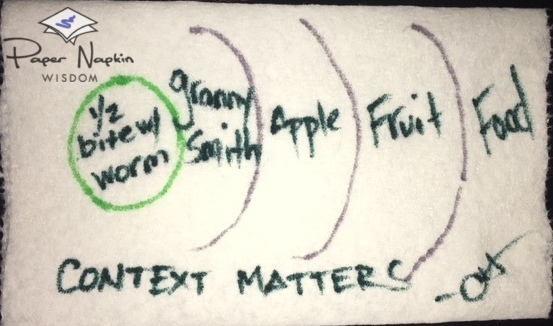 Paper Napkin
WISDOM
1/2
bite w/
worm
granny
Smith
Apple
Fruit
Food
CONTEXT MATTERS